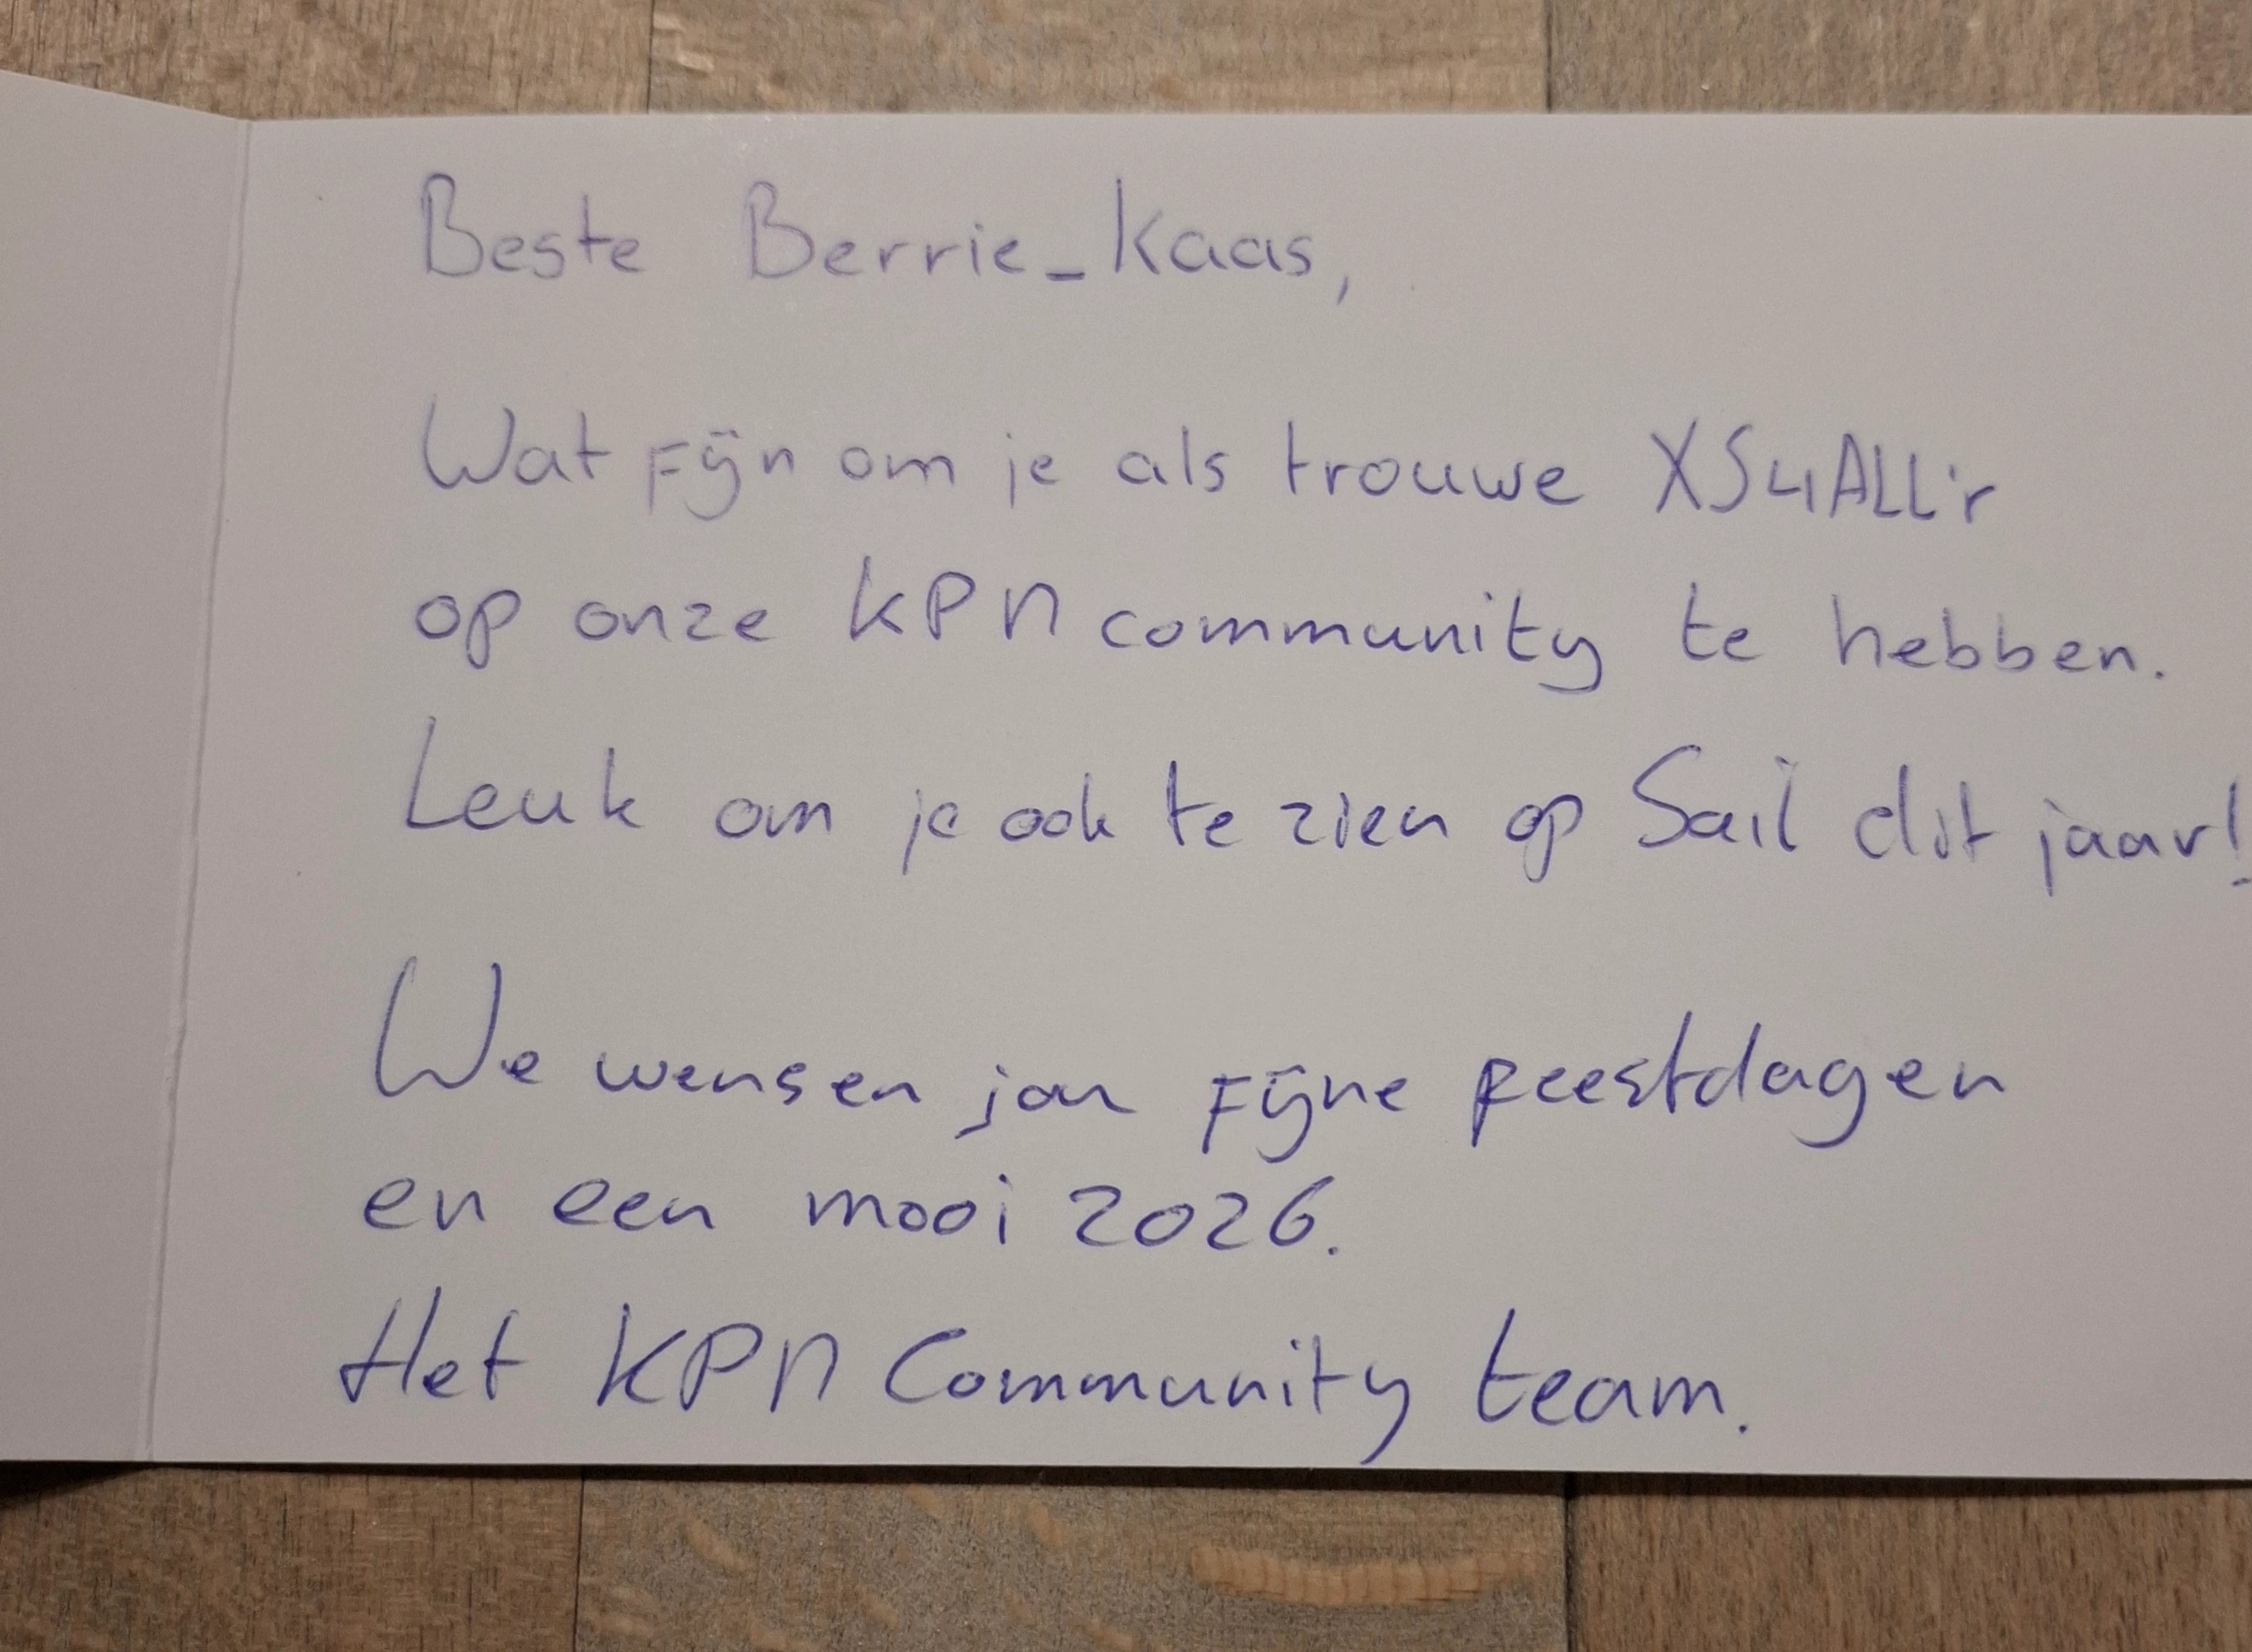 Beste Berrie_Kaas,
Wat fijn om je als trouwe XS4ALL'r
op onze KPN community te hebben.
Leuk om je ook te zien op Sail dit jaar!
We wensen jou fijne feestdagen
en een mooi 2026.
Het KPN Community team.